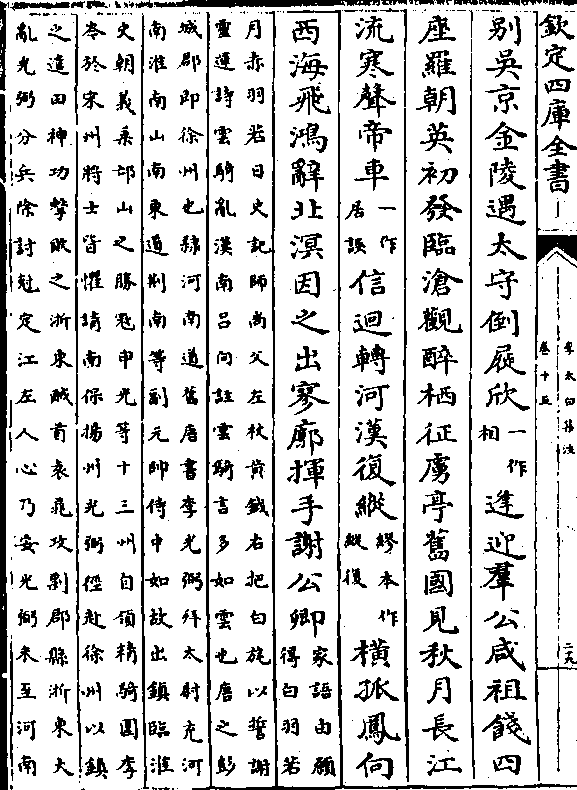 欽定四庫全書
李太白集注
卷十五
二十九
別吳京金陵遇太守倒屐欣一作相逢迎羣公咸祖餞四
座羅朝英初發臨滄觀醉栖征虜亭舊國見秋月長江
流寒聲帝車一作居誤信迴轉河漢復縱繆本作縱復橫孤鳳向
西海飛鴻辭北溟因之出寥廓揮手謝公卿家語由願得白羽若
月赤羽若日史記師尚父左杖黄鉞右把白旄以誓謝
靈運詩雲騎亂漢南呂向註雲騎言多如雲也唐之彭
城郡即徐州也隸河南道舊唐書李光弼拜太尉充河
南淮南山南東道荆南等副元帥侍中如故出鎮臨淮
史朝義乘邙山之勝冦申光等十三州自領精騎圍李
岑於宋州將士皆懼請南保揚州光弼徑赴徐州以鎮
之遣田神功擊敗之浙東賊首袁晁攻剽郡縣浙東大
亂光弼分兵除討尅定江左人心乃安光弼未至河南